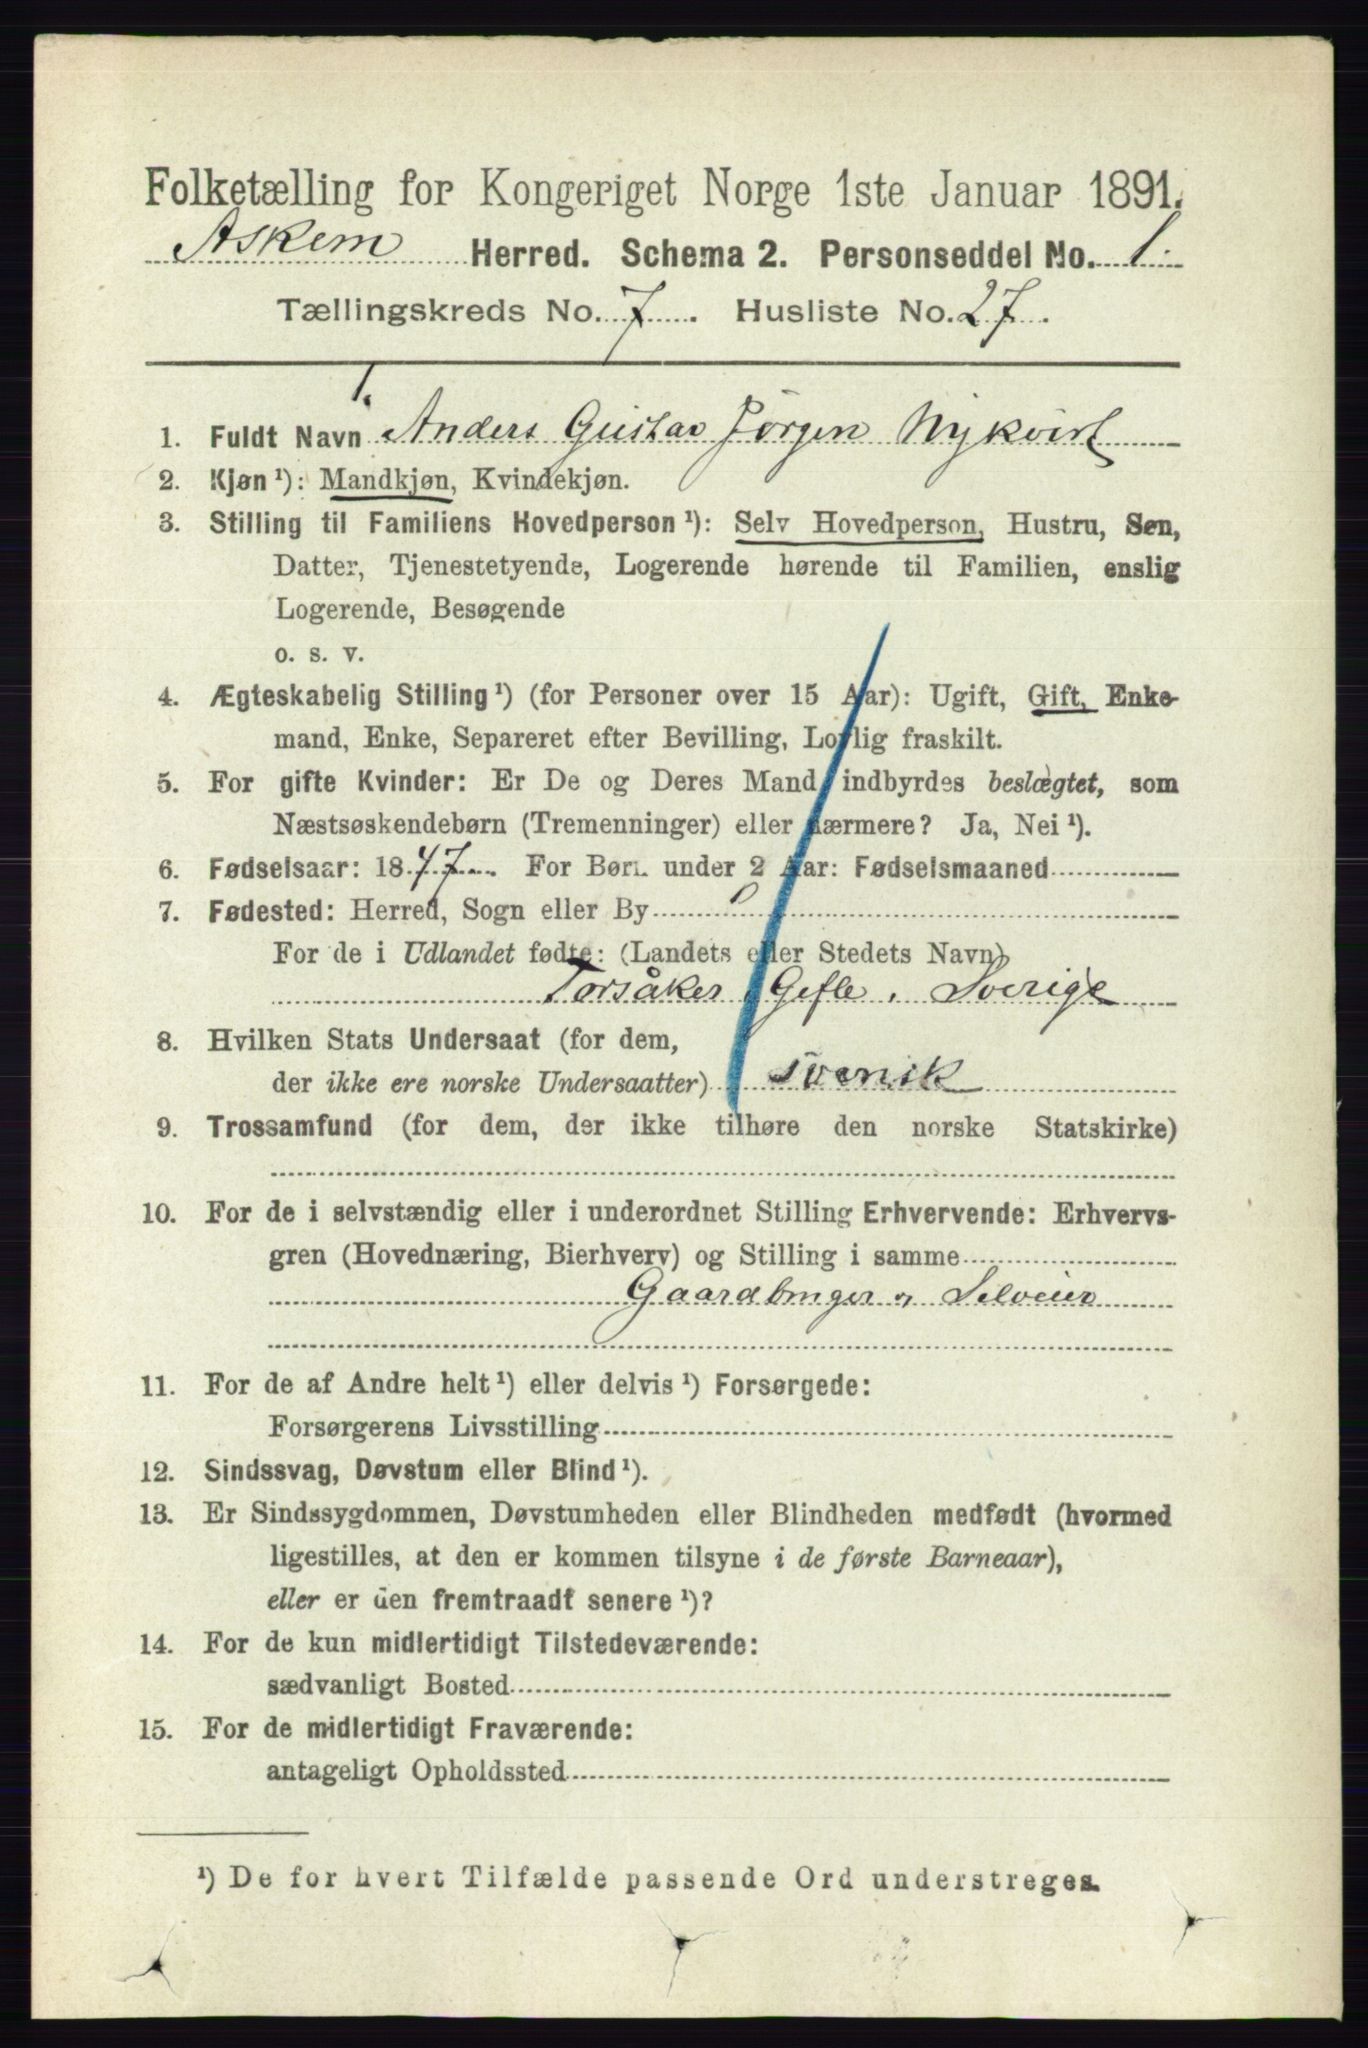 Folketælling for Kongeriget Norge 1ste Januar 1891.
Askem Herred. Schema 2. Personseddel No. 1.
Tællingskreds No. 7. Husliste No. 27.
1.
1. Fuldt Navn Anders Gustav Jörgen Nykvist
2. Kjøn¹): Mandkjøn, Kvindekjøn.
3. Stilling til Familiens Hovedperson¹): Selv Hovedperson, Hustru, Søn,
Datter, Tjenestetyende, Logerende hørende til Familien, enslig
Logerende, Besøgende
o. s. v.
4. Ægteskabelig Stilling¹) (for Personer over 15 Aar): Ugift, Gift, Enke-
mand, Enke, Separeret efter Bevilling, Lovlig fraskilt.
5. For gifte Kvinder: Er De og Deres Mand indbyrdes beslægtet, som
Næstsøskendebørn (Tremenninger) eller nærmere? Ja, Nei¹).
6. Fødselsaar: 1847. For Børn under 2 Aar: Fødselsmaaned
7. Fødested: Herred, Sogn eller By
For de i Udlandet fødte: (Landets eller Stedets Navn)
Torsåker, Gefle, Sverige
8. Hvilken Stats Undersaat (for dem,
der ikke ere norske Undersaatter) svensk
9. Trossamfund (for dem, der ikke tilhøre den norske Statskirke)
10. For de i selvstændig eller i underordnet Stilling Erhvervende: Erhvervs-
gren (Hovednæring, Bierhverv) og Stilling i samme
Gaardbruger, Selveier
11. For de af Andre helt¹) eller delvis¹) Forsørgede:
Forsørgerens Livsstilling
12. Sindssvag, Døvstum eller Blind¹).
13. Er Sindssygdommen, Døvstumheden eller Blindheden medfødt (hvormed
ligestilles, at den er kommen tilsyne i de første Barneaar),
eller er den fremtraadt senere¹)?
14. For de kun midlertidigt Tilstedeværende:
sædvanligt Bosted
15. For de midlertidigt Fraværende:
antageligt Opholdssted
¹) De for hvert Tilfælde passende Ord understreges.